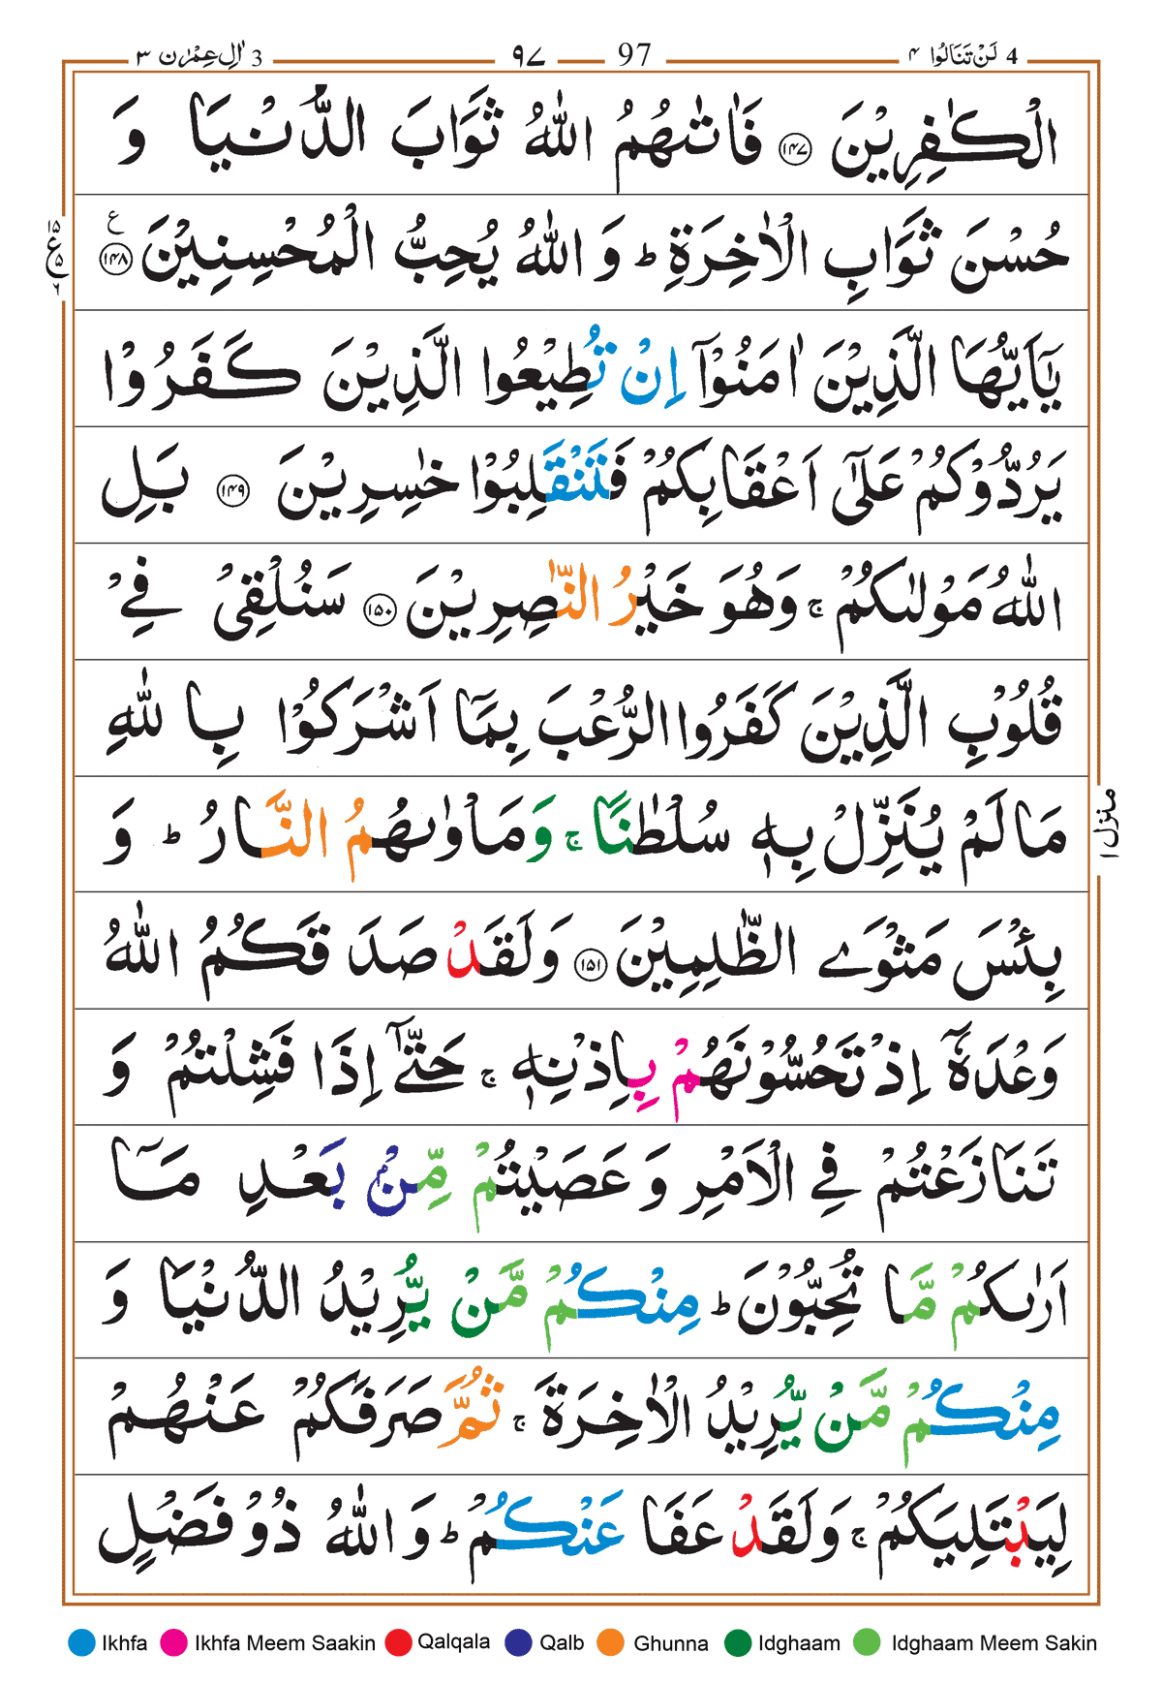 4 لَنْ تَنَالُوا ۴ 97 ۹۷ 3 اٰلِ عِمْرٰن ۳
الْكٰفِرِيْنَ ﴿۱۴۷﴾ فَاٰتٰىهُمُ اللّٰهُ ثَوَابَ الدُّنْيَا وَ
حُسْنَ ثَوَابِ الْاٰخِرَةِ ؕ وَ اللّٰهُ يُحِبُّ الْمُحْسِنِيْنَ ﴿۱۴۸﴾ ع
يٰۤاَيُّهَا الَّذِيْنَ اٰمَنُوْۤا اِنْ تُطِيْعُوا الَّذِيْنَ كَفَرُوْا
يَرُدُّوْكُمْ عَلٰۤى اَعْقَابِكُمْ فَتَنْقَلِبُوْا خٰسِرِيْنَ ﴿۱۴۹﴾ بَلِ
اللّٰهُ مَوْلٰىكُمْ ۚ وَهُوَ خَيْرُ النّٰصِرِيْنَ ﴿۱۵۰﴾ سَنُلْقِىْ فِىْ
قُلُوْبِ الَّذِيْنَ كَفَرُوا الرُّعْبَ بِمَاۤ اَشْرَكُوْا بِاللّٰهِ
مَا لَمْ يُنَزِّلْ بِهٖ سُلْطٰنًا ۚ وَمَاْوٰىهُمُ النَّارُ ؕ وَ
بِئْسَ مَثْوَى الظّٰلِمِيْنَ ﴿۱۵۱﴾ وَلَقَدْ صَدَقَكُمُ اللّٰهُ
وَعْدَهٗۤ اِذْ تَحُسُّوْنَهُمْ بِاِذْنِهٖ ۚ حَتّٰۤى اِذَا فَشِلْتُمْ وَ
تَنَازَعْتُمْ فِى الْاَمْرِ وَ عَصَيْتُمْ مِّنْۢ بَعْدِ مَاۤ
اَرٰىكُمْ مَّا تُحِبُّوْنَ ؕ مِنْكُمْ مَّنْ يُّرِيْدُ الدُّنْيَا وَ
مِنْكُمْ مَّنْ يُّرِيْدُ الْاٰخِرَةَ ۚ ثُمَّ صَرَفَكُمْ عَنْهُمْ
لِيَبْتَلِيَكُمْ ۚ وَلَقَدْ عَفَا عَنْكُمْ ؕ وَ اللّٰهُ ذُوْ فَضْلٍ
۱۵ ع ۵ ۶
منزل ۱
Ikhfa Ikhfa Meem Saakin Qalqala Qalb Ghunna Idghaam Idghaam Meem Sakin